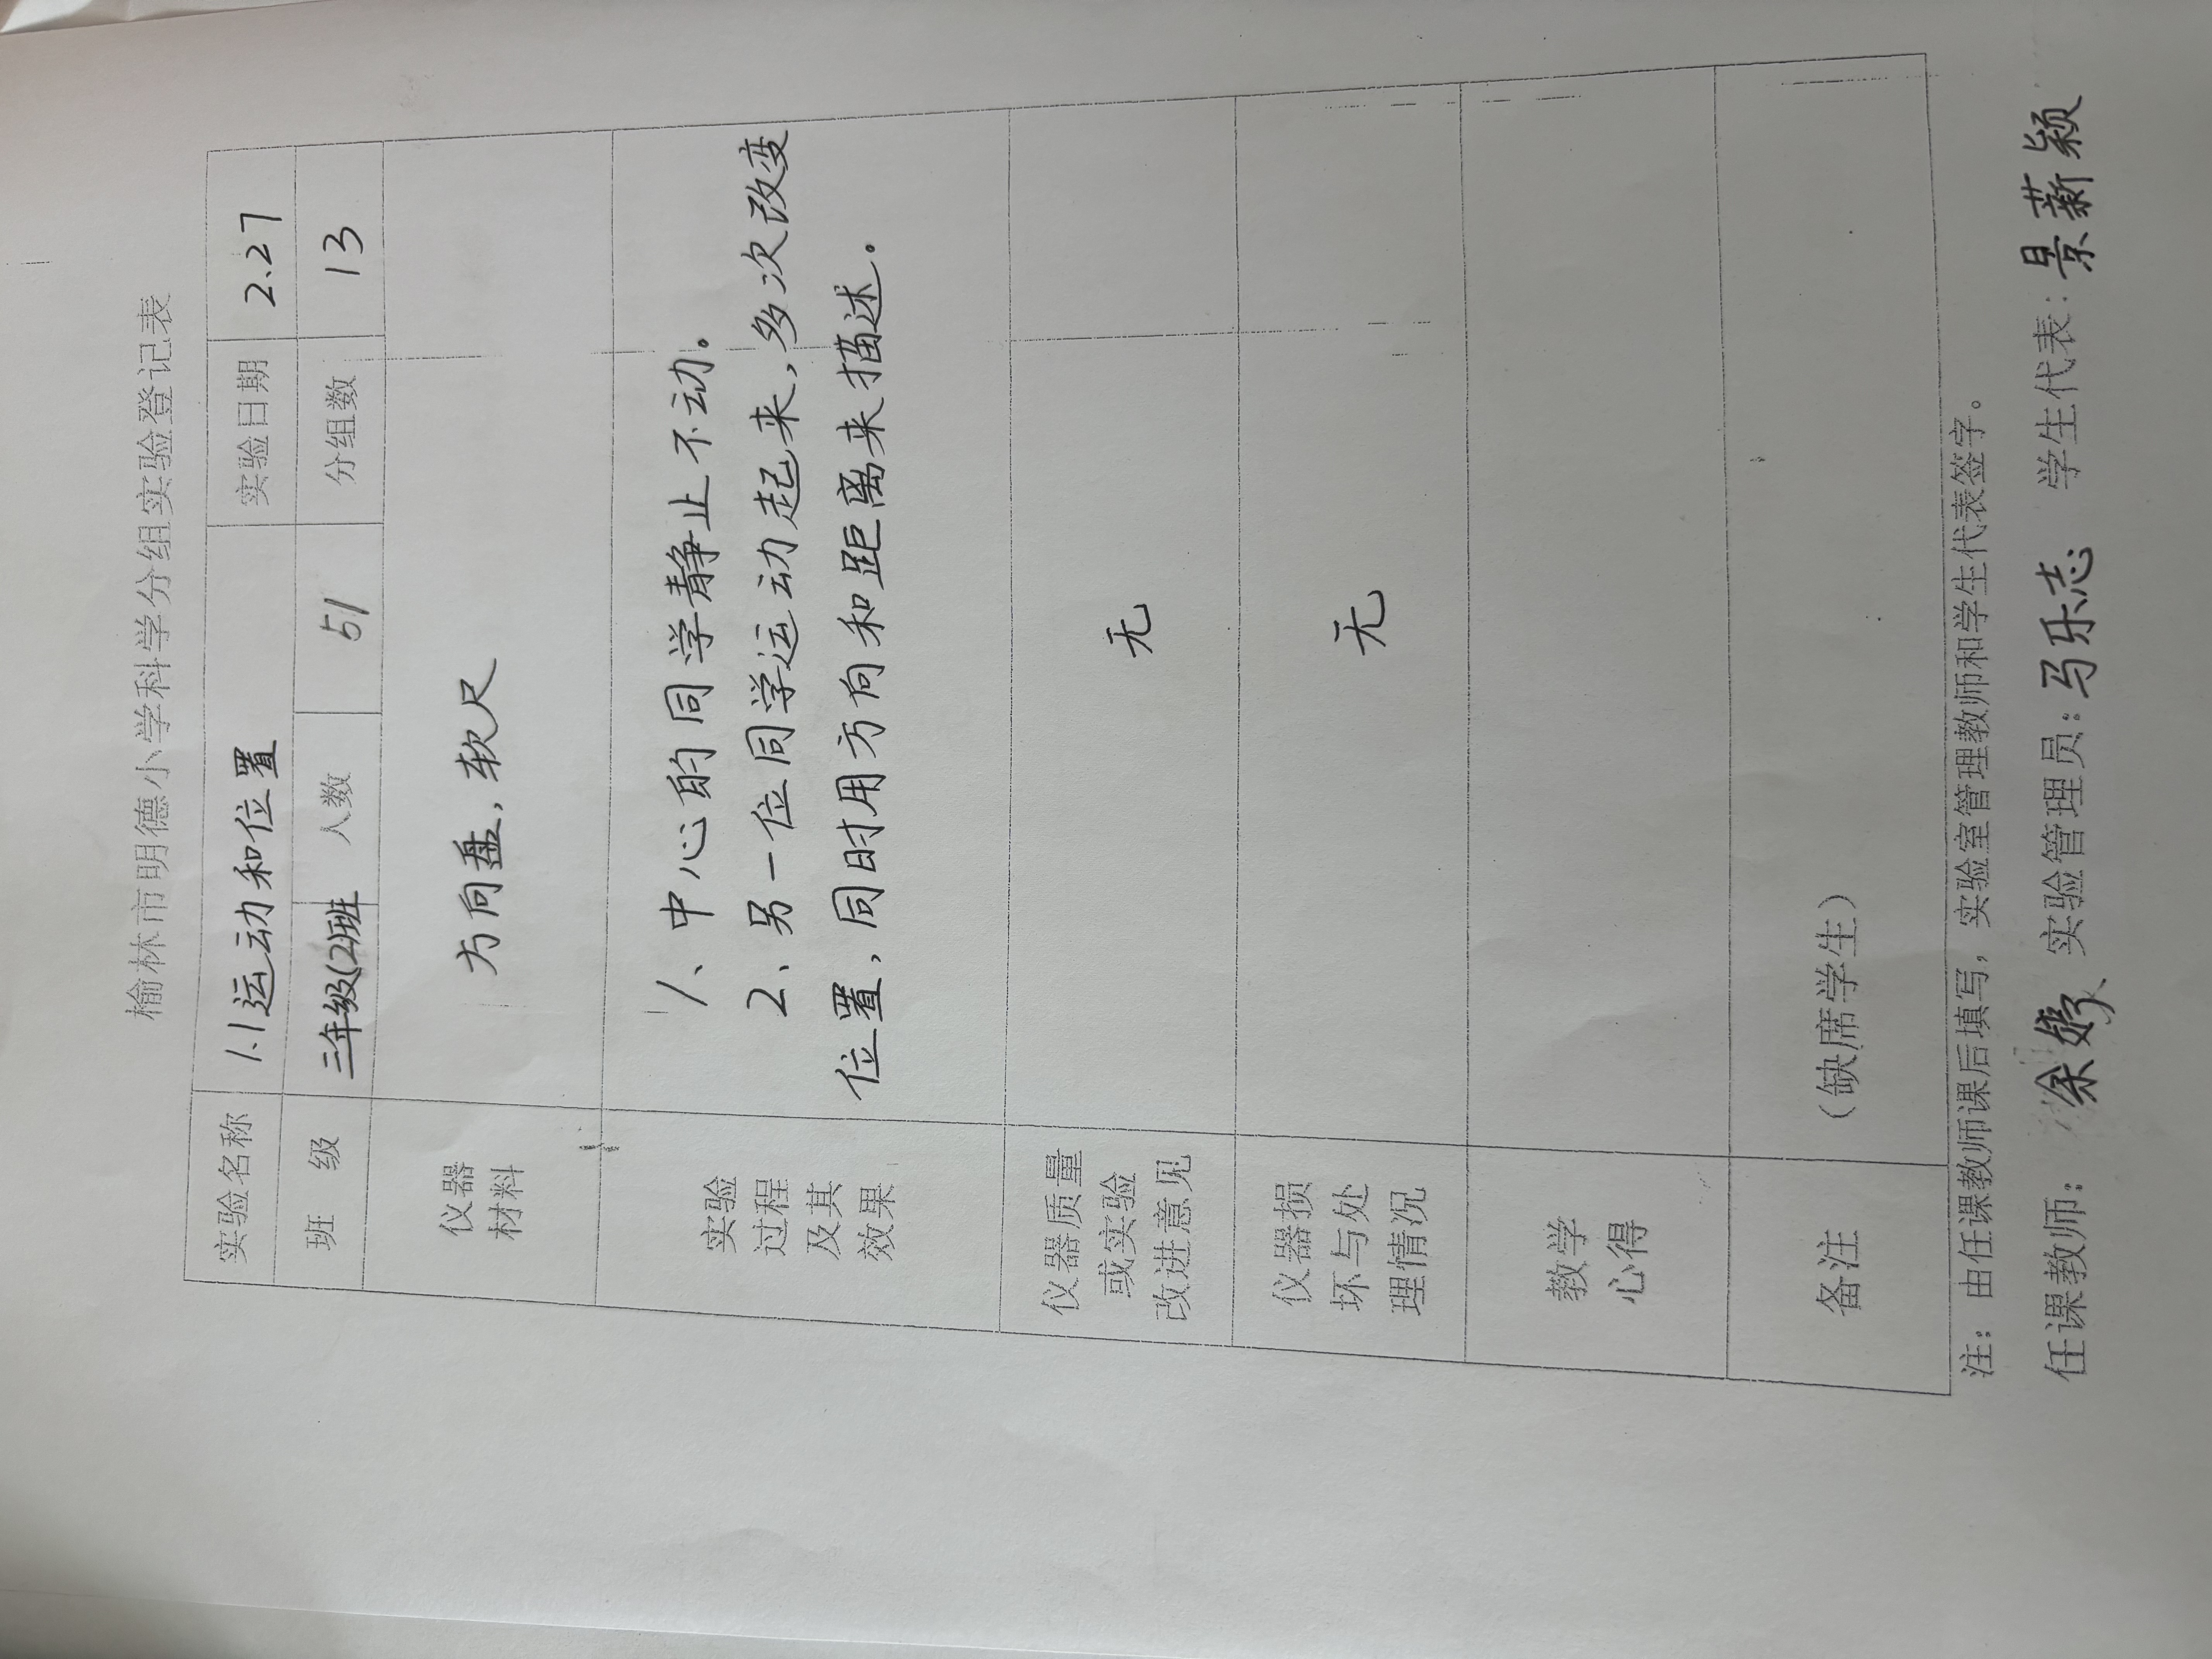 榆林市明德小学科学分组实验登记表
实验名称 1.1运动和位置 实验日期 2.27
班 级 三年级(2)班 人数 51 分组数 13
仪器
材料
方向盘,软尺
实验
过程
及其
效果
1、中心的同学静止不动。
2、另一位同学运动起来,多次改变
位置,同时用方向和距离来描述。
仪器质量
或实验
改进意见
无
仪器损
坏与处
理情况
无
教学
心得
备注
(缺席学生)
注:由任课教师课后填写,实验室管理教师和学生代表签字。
任课教师: 余婷 实验管理员:马乐志 学生代表:景薪颖